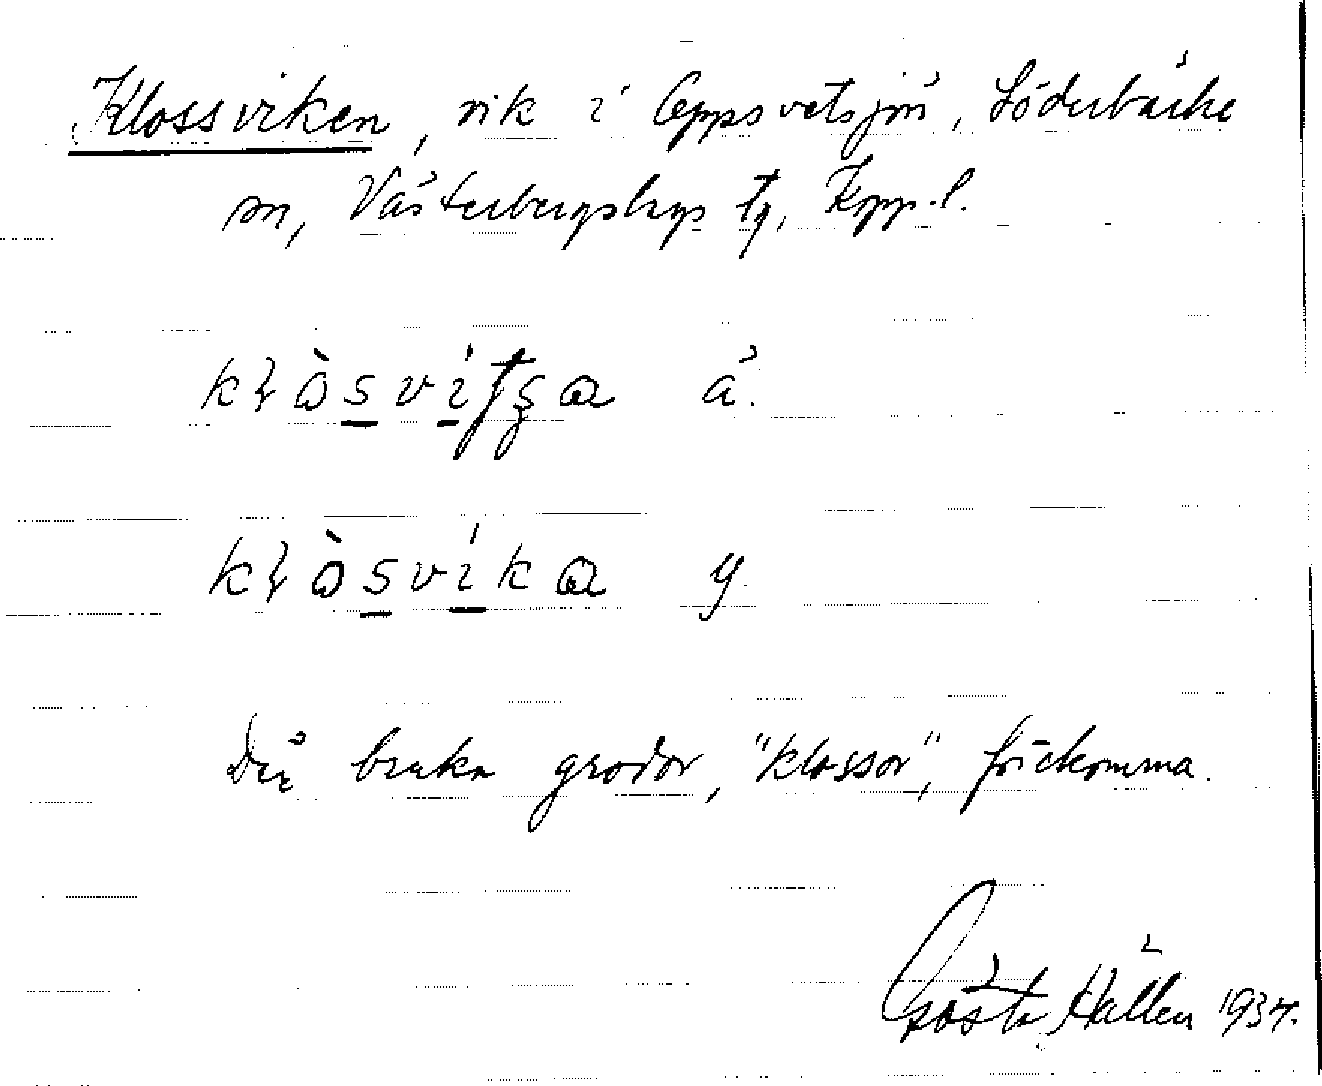 Klossviken, vik i Oppsvetsjön, Söderbärke
sn, Västerbergslags tg, Kopp. l.
klɔ̀svitʂa ä.
klɔ̀svika y.
Där bruka grodor, "klossor", förekomma.
Gösta Hällen 1934.